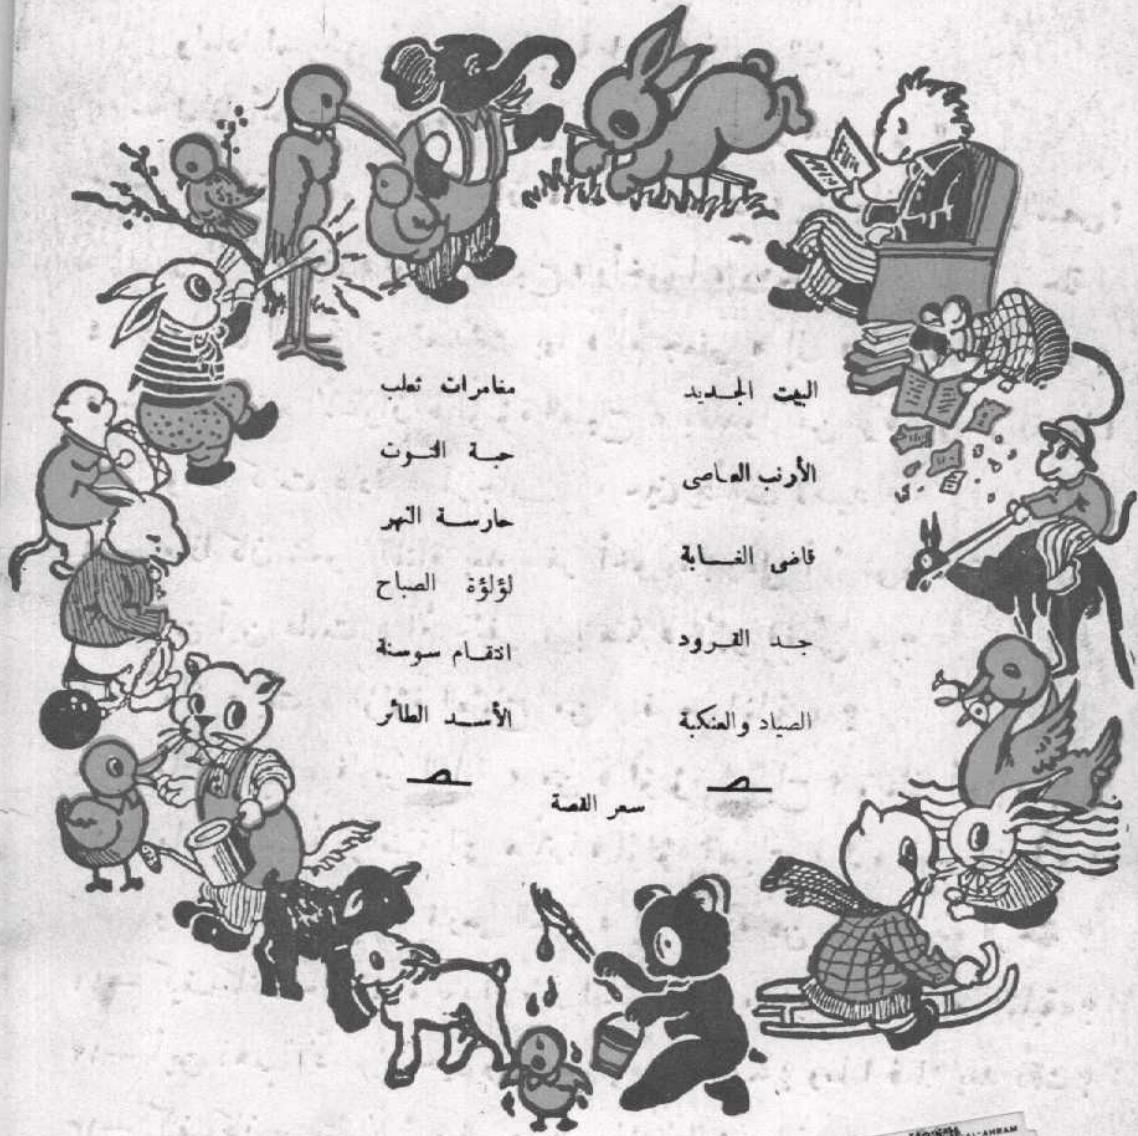 البيت الجديد
الأرنب العاصى
قاضى الغابة
جد القرود
الصياد والعنكبة
مغامرات ثعلب
حبة التوت
حارسة النهر
لؤلؤة الصباح
انتقام سوسنة
الأسد الطائر
سعر القصة
AL-AHRAM